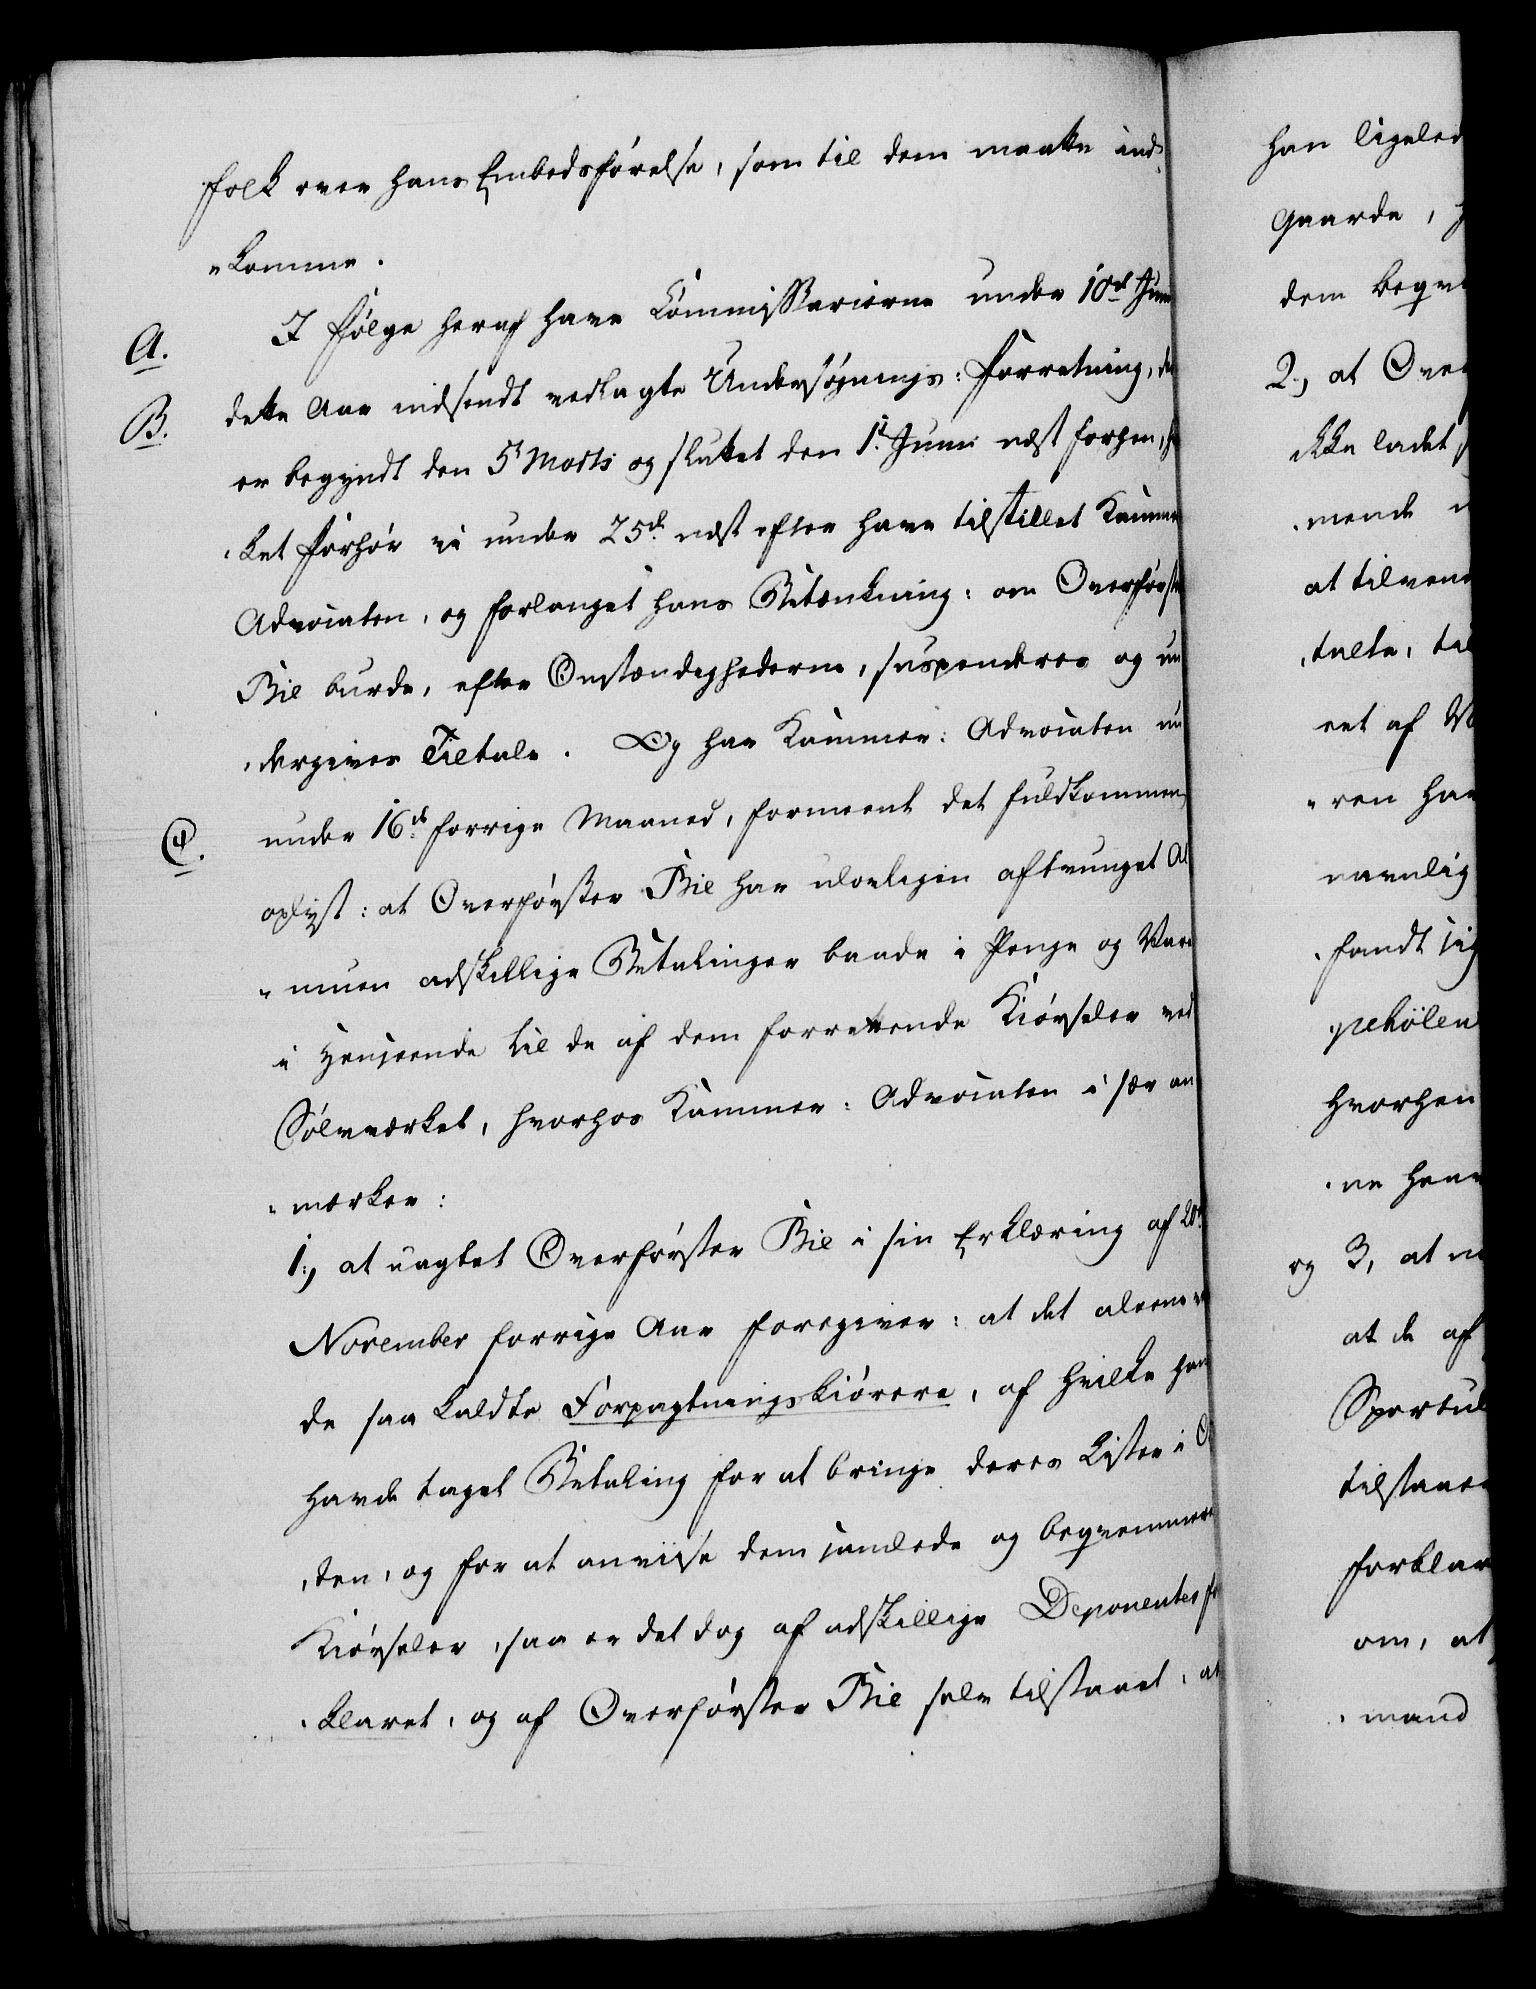 folk over hans Embedsførelse, som til dem maatte ind-
"komme.
A. I Følge heraf have Commissarierne under 10de Juni
B. dette Aar indsendt vedlagte Undersøgnings: Forretning, der
er begyndt den 5t Marts og sluttet den 1t Juni næst forhen, hvil
"ket Forhør vi under 25de næst efter have tilstillet Kammer
Advocaten, og forlanget hans Betænkning: om Overførster
Bie burde, efter Omstændighederne, suspenderes og un
"dergives Tiltale. Og har Kammer: Advocaten nu
C. under 16de forrige Maaned, formeent det fuldkommen
oplyst: at Overførster Bie har ulovligen aftvunget Al
"muen adskillige Betalinger baade i Penge og Vare
i Henseende til de af dem forrettende Kiørseler ved
Sølvværket, hvorhos Kammer: Advocaten i sær an
"mærker:
1:, at uagtet Overførster Bie i sin Erklæring af 20de
November forrige Aar foregiver: at det aleene
de saa kaldte Forpagtningskiørere, af hvilke han
havde taget Betaling for at bringe deres Lister i Or
"den, og for at anviise dem samlede og beqvemmere
Kiørseler, saa er det dog af adskillige Deponentes for
"klaret, og af Overførster Bie selv tilstaaet, at
han ligeled
Gaarde,
dem beqve
2, at Over
ikke ladet
"mende
at tilvend
"talte, til
eet af
"ren har
navnlig
"fandt sig
hvorhen
"ne have
og 3, at
at de af
Sportul
tilstaae
forklar
om, at
"mand